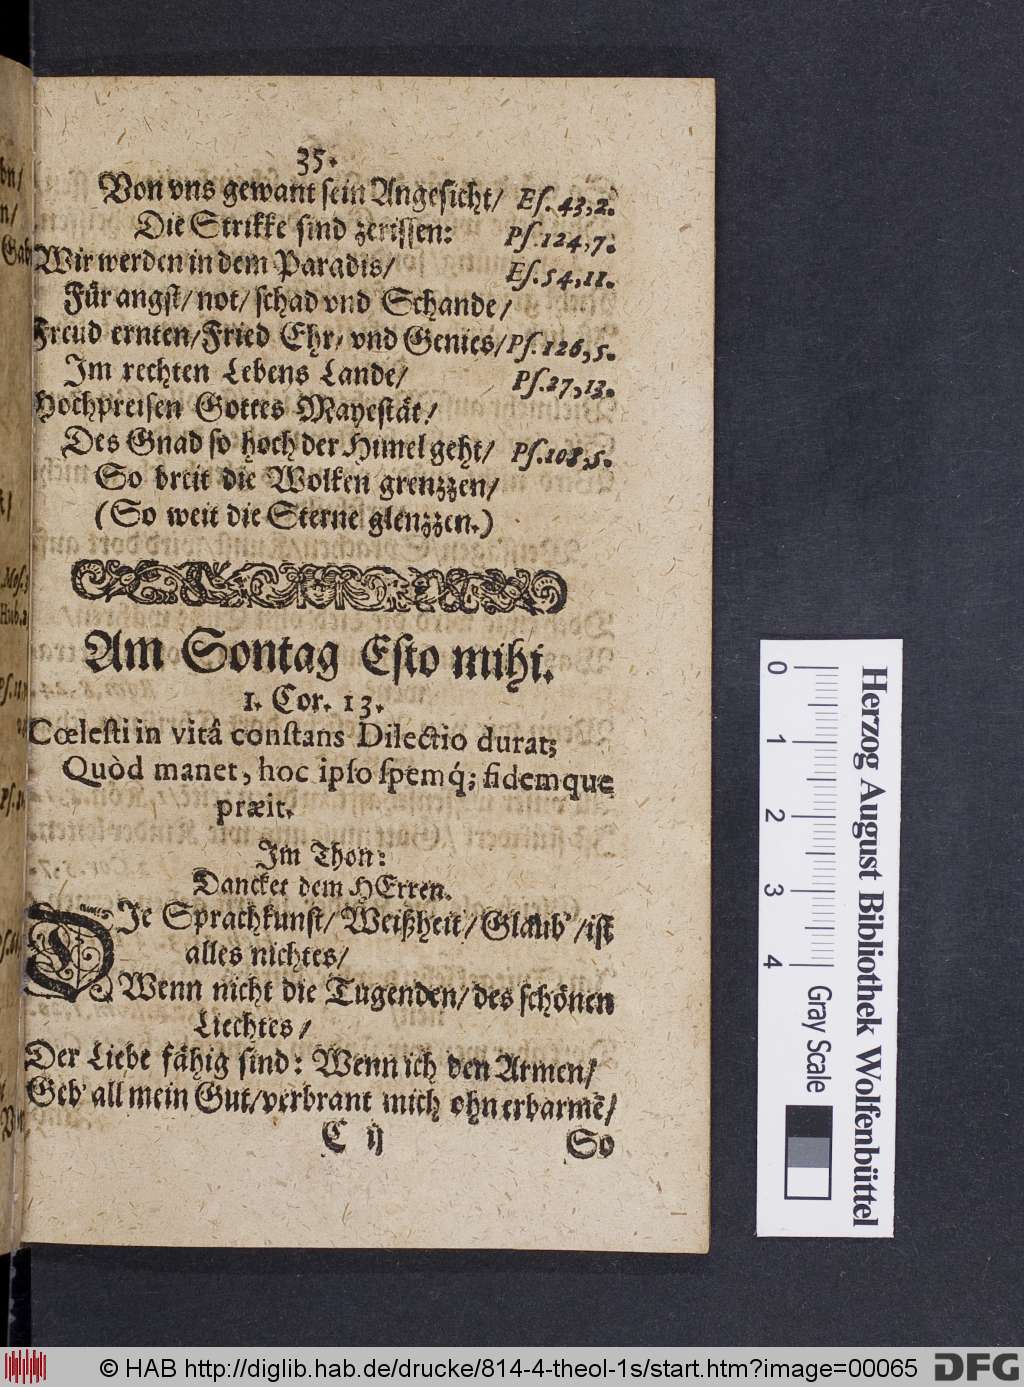 35.
Von vns gewant sein Angesicht/ Es. 43,2.
Die Strikke sind zerissen: Ps.124,7.
Wir werden in dem Paradis/ Es.54,11.
Für angst/not/schad vnd Schande/
Freud ernten/Fried Ehr/ vnd Genies/ Ps.126,5.
Im rechten Lebens Lande/ Ps.27,13.
Hochpreisen Gottes Mayestät/
Des Gnad so hoch der Himel geht/ Ps.108,5.
So breit die Wolken grenzzen/
(So weit die Sterne glenzzen.)
Am Sontag Esto mihi.
1. Cor. 13.
Cœlesti in vitâ constans Dilectio durat;
Quòd manet, hoc ipso spemq́; fidemque
præit.
Im Thon:
Dancket dem HErren.
DIe Sprachkunst/Weißheit/Glaub'/ist
alles nichtes/
Wenn nicht die Tugenden/des schönen
Liechtes/
Der Liebe fähig sind: Wenn ich den Armen/
Geb' all mein Gut/verbrant mich ohn erbarmē/
C ij So
0
1
2
3
4
Gray Scale
Herzog August Bibliothek Wolfenbüttel
© HAB http://diglib.hab.de/drucke/814-4-theol-1s/start.htm?image=00065
DFG